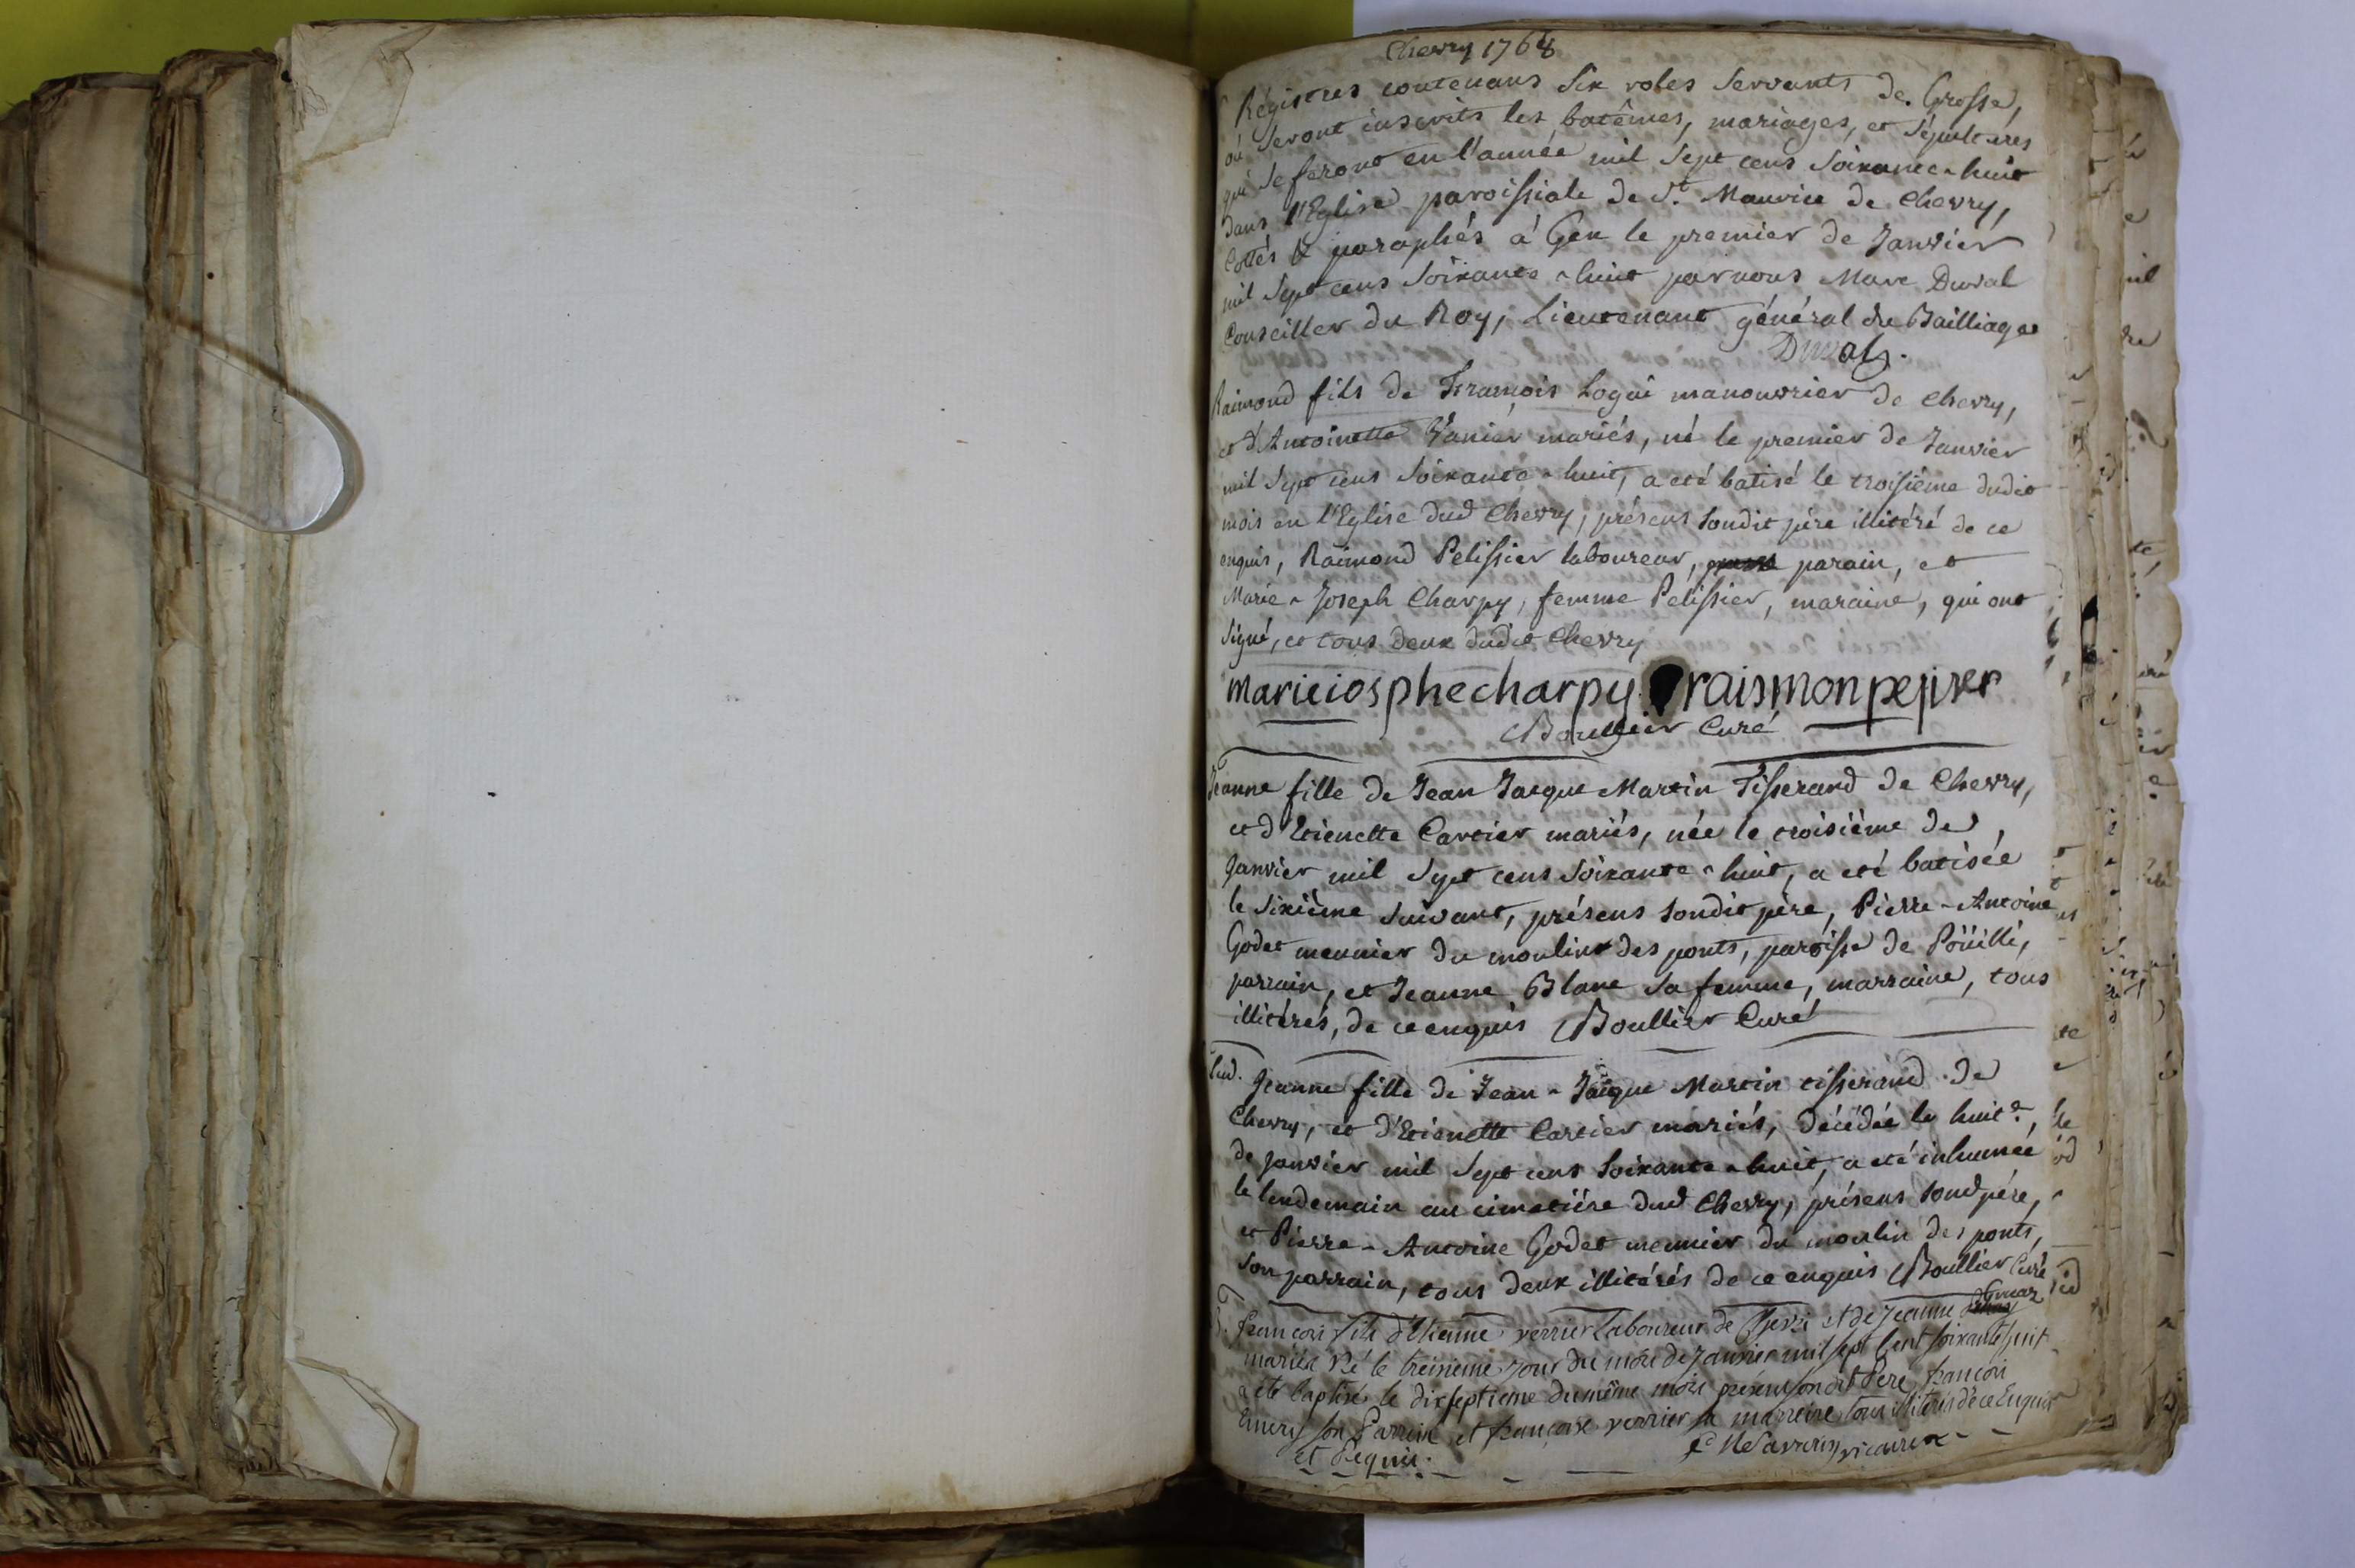 Chevry 1768
Régistres contenans Six roles Servants de Grosse,
où Seront inscrits les batêmes, mariages, et Sépultures
qui Se feront en l'année mil Sept cens Soixante-huit
dans l'Eglise paroissiale de St. Maurice de Chevry,
Cottés & paraphés à Gex le premier de Janvier
mil Sept cens Soixante-huit par nous Marc Duval
Conseiller du Roy, Lieutenant général du Bailliage
Duval.
Raimond fils de François Logui manouvrier de Chevry,
et d'Antoinette Vanier mariés, né le premier de Janvier
mil Sept cens Soixante-huit, a eté batisé le troisiême dudit
mois en l'Eglise dud Chevry, présens Sondit père illitéré de ce
enquis, Raimond Pelissier laboureur, parain, et
Marie-Joseph Charpy, femme Pelissier, maraine, qui ont
Signé, et tous deux dudit Chevry
marieiosphecharpy raismonpejiser
Boullier Curé
Jeanne fille de Jean Jacque Martin Tisserand de Chevry,
et d'Etienette Cartier mariés, née le troisième de
Janvier mil Sept cens Soixante-huit, a eté batisée
le Sixième Suivant, présens Sondit père, Pierre-Antoine
Godet meunier du moulin des ponts, paroisse de Poüilli,
parrain, et Jeanne Blanc Sa femme, marraine, tous
illitérés, de ce enquis Boullier Curé
Jeanne fille de Jean-Jacque Martin tisserand de
Chevry, et d'Etienette Cartier mariés, décédée le huite,
de Janvier mil Sept cens Soixante-huit, a eté inhumée
le lendemain au cimetière dud Chevry, présens Sond père,
et Pierre-Antoine Godet meunier du moulin des ponts,
Son parrain, tous deux illitérés de ce enquis Boullier Curé
françois fils d'Etienne verrier laboureur de Chevri et de Jeanne
mariés Né le treisieme jour du mois de Janvier mil sept Cent soixante huit
a été baptisé le dixseptieme du même mois présens sondit Pere, françois
Emery son Parrein et françoise verrier sa marreine tous illiterés de ce Enquis
et Requis. vicaire